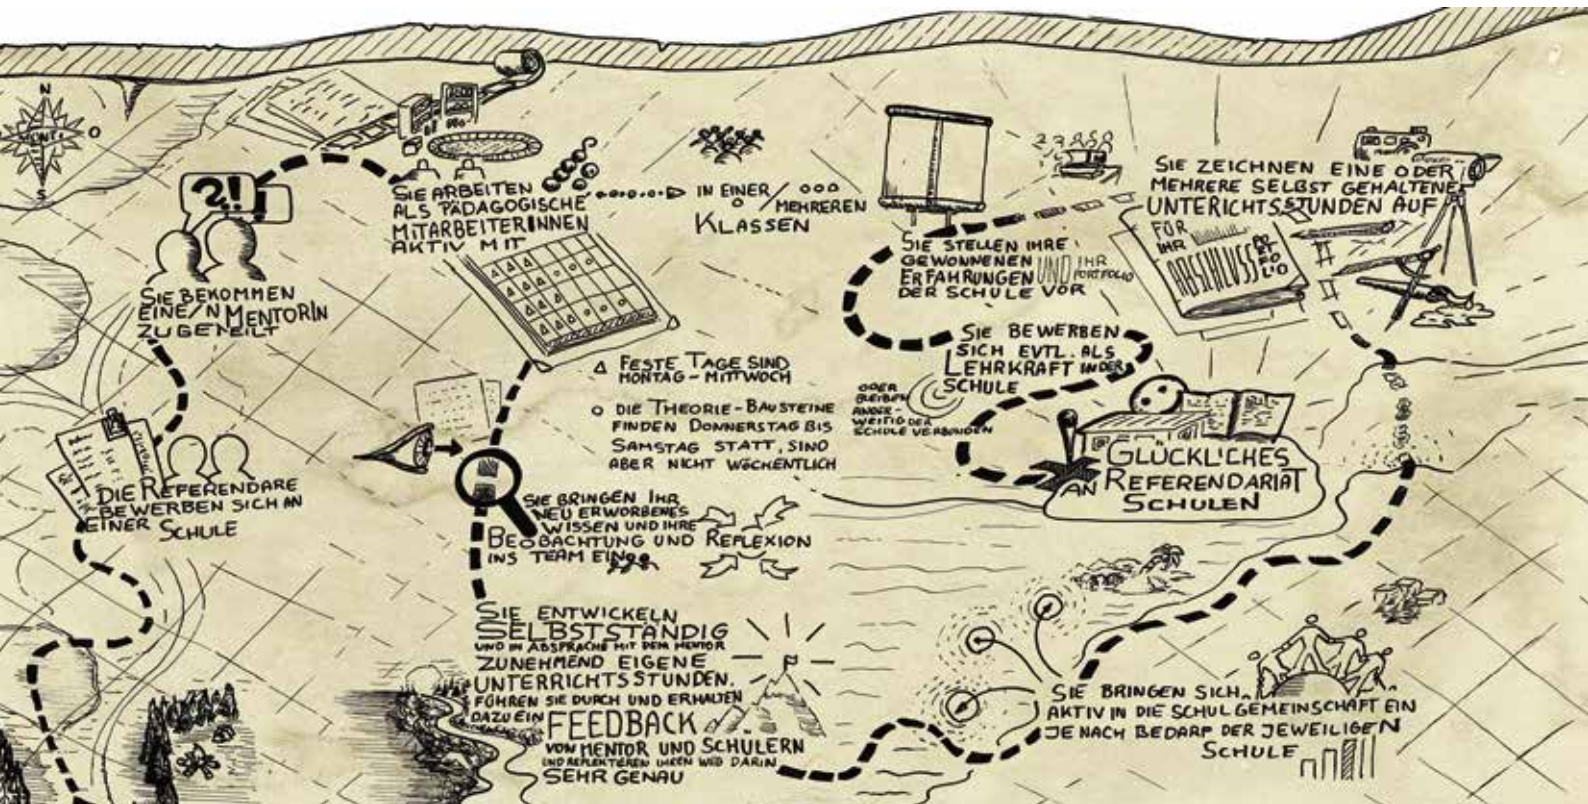 N
O
S
?!
!
DIE REFERENDARE
BEWERBEN SICH AN
EINER SCHULE
SIE BEKOMMEN
EINE/N MENTORIN
ZUGETEILT
SIE ARBEITEN
ALS PÄDAGOGISCHE
MITARBEITERINNEN
AKTIV MIT
IN EINER/
MEHREREN
KLASSEN
△ FESTE TAGE SIND
MONTAG-MITTWOCH
○ DIE THEORIE-BAUSTEINE
FINDEN DONNERSTAG BIS
SAMSTAG STATT, SIND
ABER NICHT WÖCHENTLICH
SIE BRINGEN IHR
NEU ERWORBENES
WISSEN UND IHRE
BEOBACHTUNG UND REFLEXION
INS TEAM EIN
SIE ENTWICKELN
SELBSTSTÄNDIG
UND IN ABSPRACHE MIT DEM MENTOR
ZUNEHMEND EIGENE
UNTERRICHTSSTUNDEN.
FÜHREN SIE DURCH UND ERHALTEN
DAZU EIN
FEEDBACK
VON MENTOR UND SCHÜLERN
UND REFLEKTIEREN IHREN WEG DARIN
SEHR GENAU
SIE BRINGEN SICH
AKTIV IN DIE SCHULGEMEINSCHAFT EIN
JE NACH BEDARF DER JEWEILIGEN
SCHULE
SIE ZEICHNEN EINE ODER
MEHRERE SELBST GEHALTENE
UNTERICHTSSTUNDEN AUF
FÜR
IHR
ABSCHLUSS
PORTFOLIO
SIE STELLEN IHRE
GEWONNENEN
ERFAHRUNGEN UND IHR
PORTFOLIO
DER SCHULE VOR
SIE BEWERBEN
SICH EVTL. ALS
LEHRKRAFT IN DER
SCHULE
ODER
BLEIBEN
ANDER-
WEITIG DER
SCHULE VERBUNDEN
GLÜCKLICHES
REFERENDARIAT
AN SCHULEN